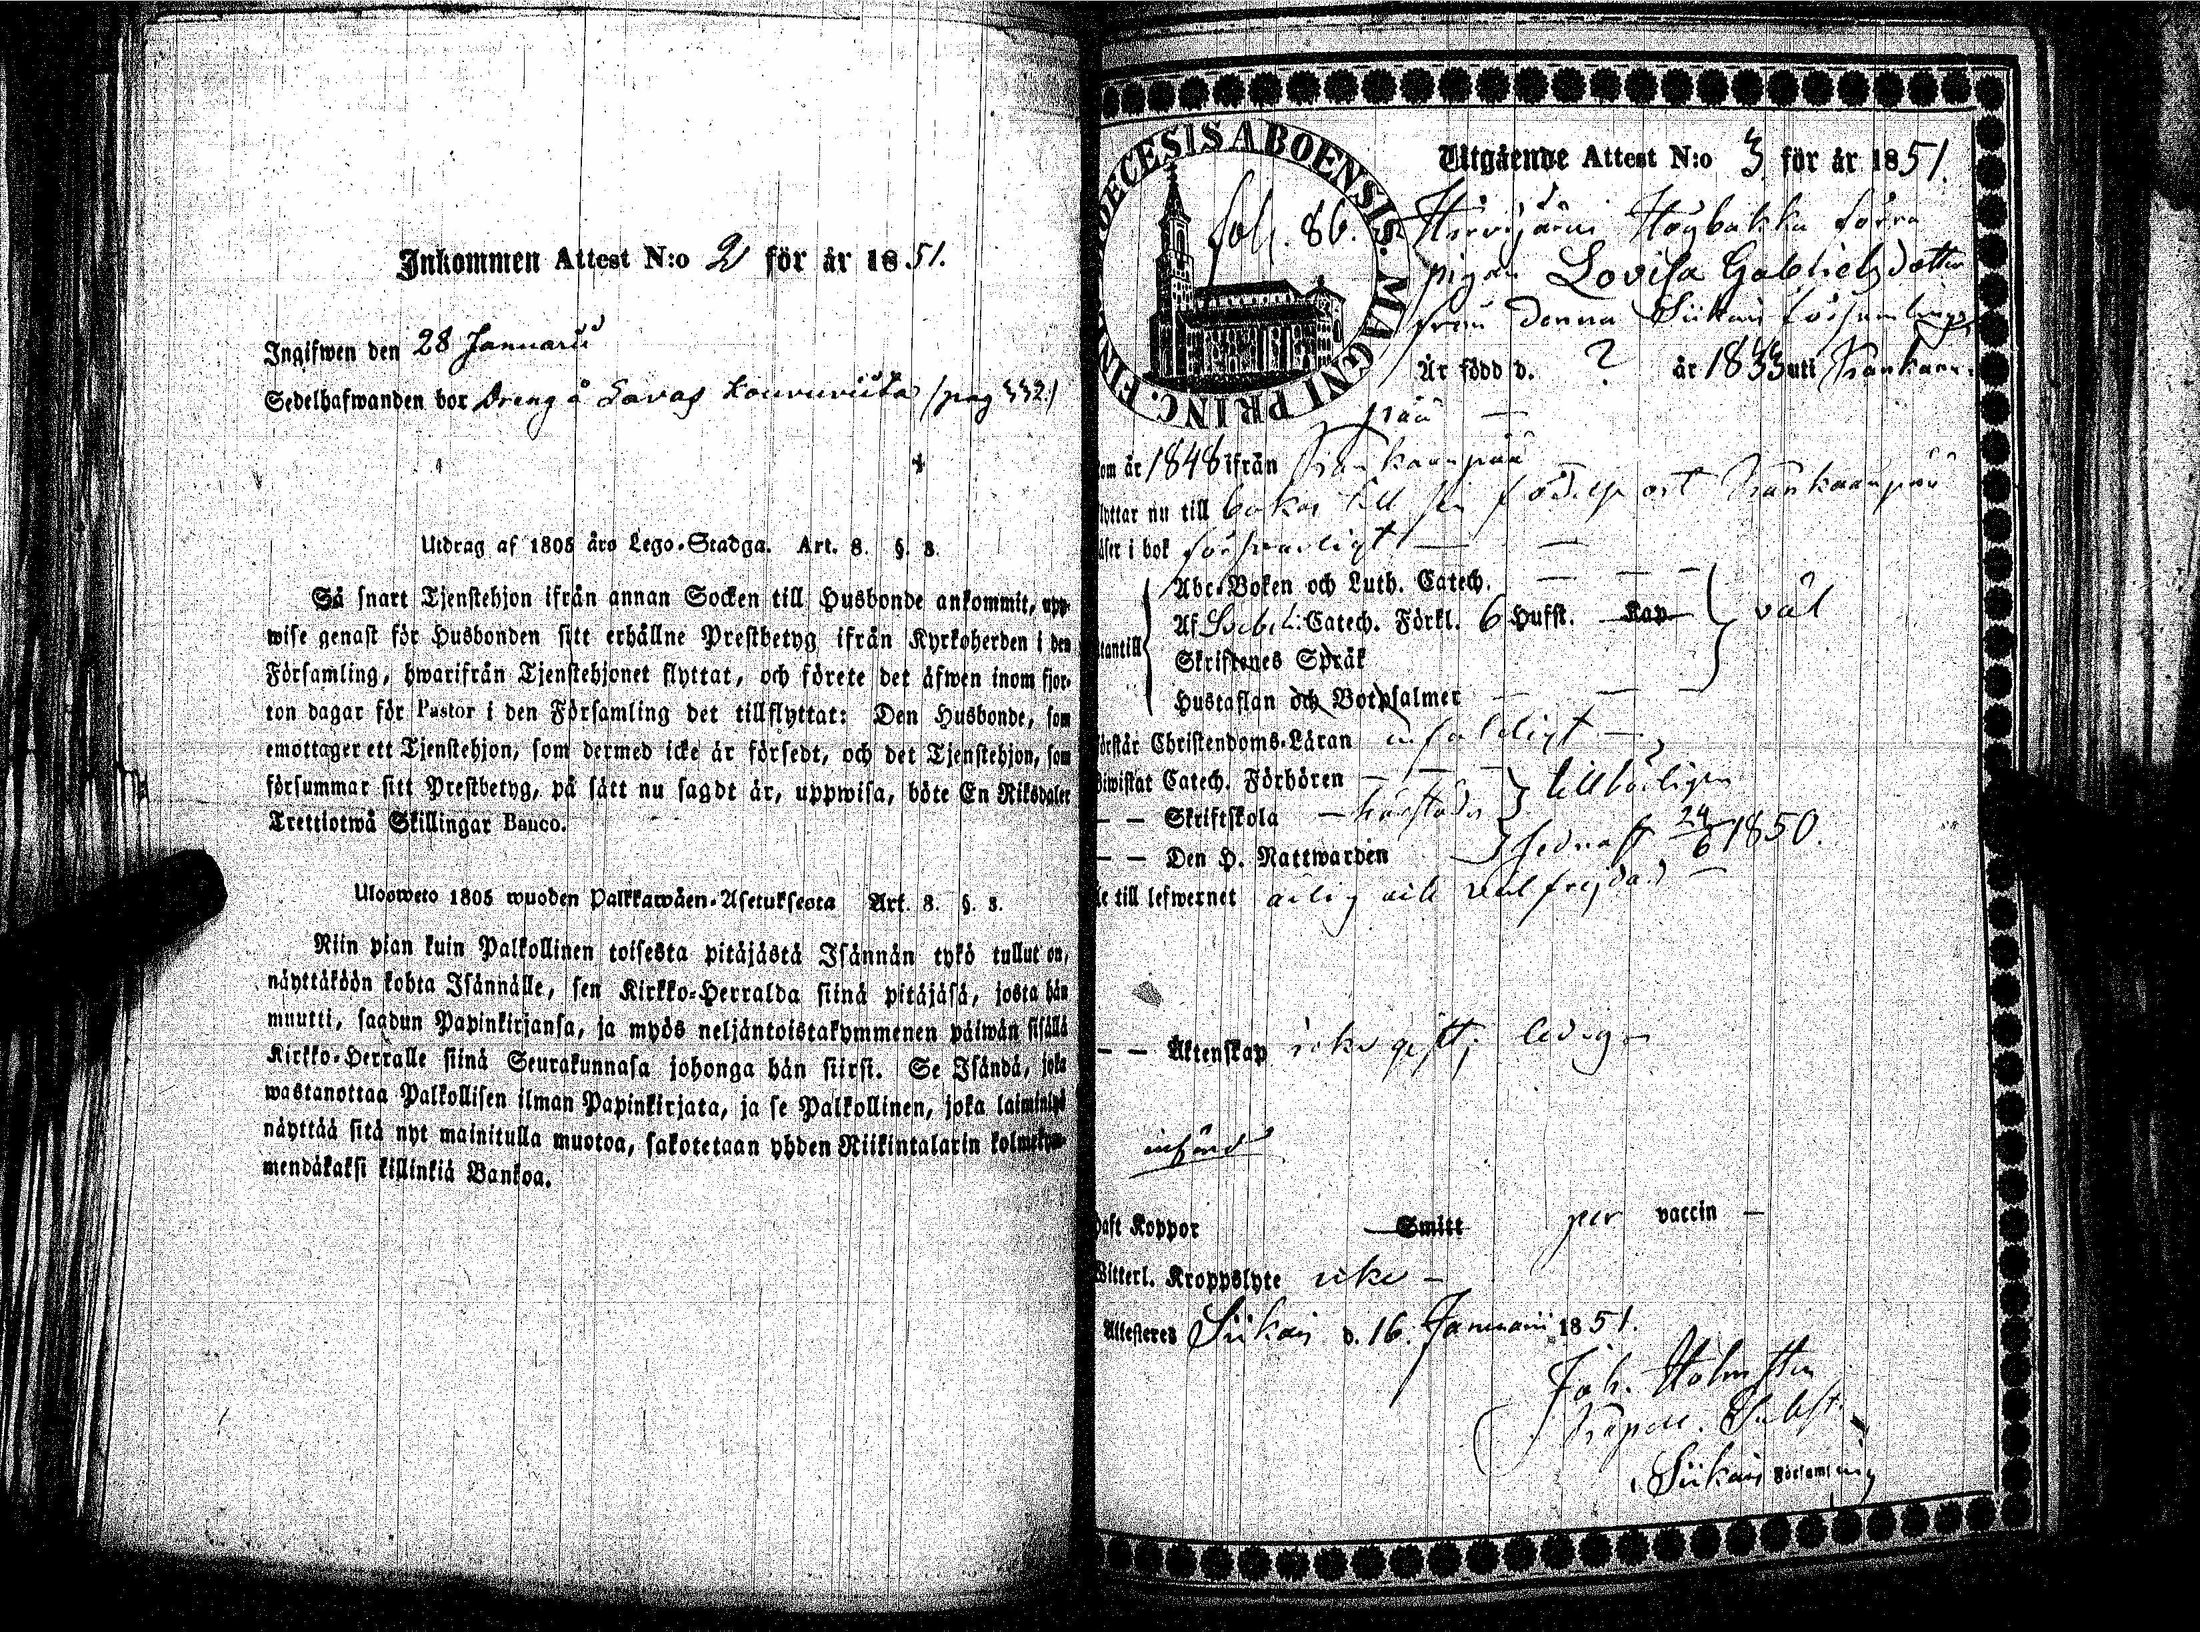 Inkommen Attest N:o 2 för år 1851.
Ingifwen den 28 Januarii
Sedelhafwanden bor Dreng å Savas /pag 332/
Utdrag af 1805 års Lego-Stadga. Art. 8. §. 3.
Så snart Tjenstehjon ifrån annan Socken till Husbonde ankommit, upp-
wise genast för Husbonden sitt erhållne Prestbetyg ifrån Kyrkoherden i den
Församling, hwarifrån Tjenstehjonet flyttat, och förete det äfwen inom fjor-
ton dagar för Pastor i den Församling det tillflyttat: Den Husbonde, som
emottager ett Tjenstehjon, som dermed icke är försedt, och det Tjenstehjon, som
försummar sitt Prestbetyg, på sätt nu sagdt är, uppwisa, böte En Riksdaler
Trettiotwå Skillingar Banco.
Ulosweto 1805 wuoden Palkkawäen-Asetuksesta Art. 8. §. 3.
Niin pian kuin Palkollinen toisesta pitäjästä Isännän tykö tullut on,
näyttäköön kohta Isännälle, sen Kirkko-Herralda siinä pitäjäsä, josta hän
muutti, saadun Papinkirjansa, ja myös neljäntoistakymmenen päiwän sisällä
Kirkko-Herralle siinä Seurakunnasa johonga hän siirsi. Se Isändä, joka
wastanottaa Palkollisen ilman Papinkirjata, ja se Palkollinen, joka laiminlyö
näyttää sitä nyt mainitulla muotoa, sakotetaan yhden Riikintalarin kolmekym-
mendäkaksi killinkiä Bankoa.
DIOECESIS ABOENSIS. MAGNI PRINC. FINL
fol. 86.
Utgående Attest N:o 3 för år 1851.
Högbakka förra
pigan Lovisa Gabrielsdotter
från denna Siikais församling,
Är född d. ? år 1833 uti Kankaan-
pää —
om år 1848 ifrån Kankaanpää
lyttar nu till bakas till sin födelse ort Kankaanpää
äser i bok försvarligt —
Abc-Boken och Luth. Catech.
Af Svebel: Catech. Förkl. 6 Hufst. Kap väl
tantill Skriftenes Språk
Hustaflan och Botpsalmer
örstår Christendoms-Läran enfaldigt —
iwistat Catech. Förhören
— — Skriftskola tillbörligen
— — Den H. Nattwarden sednast 24/6 1850.
e till lefwernet ärlig och väl frejdad —
— — Äktenskap icke gift; ledig —
införd
haft Koppor Smitt per vaccin —
Witterl. Kroppslyte icke —
Attesteres Siikais d. 16. Januarii 1851.
Joh. Holmsten
Kapell. Subst.
i Siikais Församling